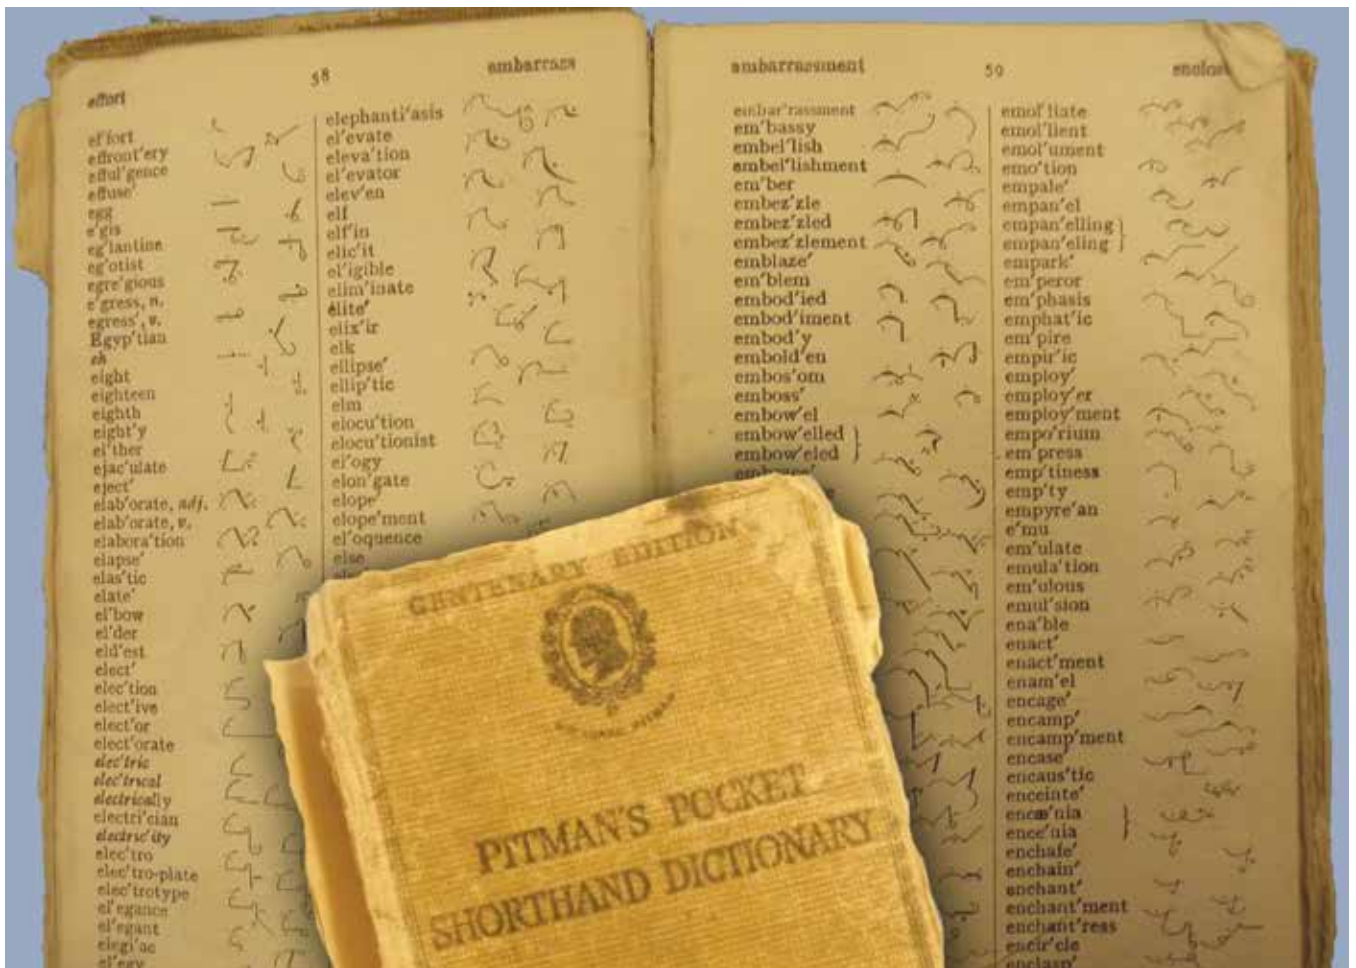 effort
58
embarrass
ef'fort
effront'ery
efful'gence
effuse'
egg
e'gis
eg'lantine
eg'otist
egre'gious
e'gress, n.
egress', v.
Egyp'tian
eh
eight
eighteen
eighth
eight'y
ei'ther
ejac'ulate
eject'
elab'orate, adj.
elab'orate, v.
elabora'tion
elapse'
elas'tic
elate'
el'bow
el'der
eld'est
elect'
elec'tion
elect'ive
elect'or
elect'orate
elec'tric
elec'trical
electrically
electri'cian
electric'ity
elec'tro
elec'tro-plate
elec'trotype
el'egance
el'egant
elegi'ac
el'egy
elephanti'asis
el'evate
eleva'tion
el'evator
elev'en
elf
elf'in
elic'it
el'igible
elim'inate
élite'
elix'ir
elk
ellipse'
ellip'tic
elm
elocu'tion
elocu'tionist
el'ogy
elon'gate
elope'
elope'ment
el'oquence
else
embarrassment
59
embar'rassment
em'bassy
embel'lish
embel'lishment
em'ber
embez'zle
embez'zled
embez'zlement
emblaze'
em'blem
embod'ied
embod'iment
embod'y
embold'en
embos'om
emboss'
embow'el
embow'elled }
embow'eled }
emol'liate
emol'lient
emol'ument
emo'tion
empale'
empan'el
empan'elling }
empan'eling }
empark'
em'peror
em'phasis
emphat'ic
em'pire
empir'ic
employ'
employ'er
employ'ment
empo'rium
em'press
emp'tiness
emp'ty
empyre'an
e'mu
em'ulate
emula'tion
em'ulous
emul'sion
ena'ble
enact'
enact'ment
enam'el
encage'
encamp'
encamp'ment
encase'
encaus'tic
enceinte'
encæ'nia }
ence'nia }
enchafe'
enchain'
enchant'
enchant'ment
enchant'ress
encir'cle
enclasp'
CENTENARY EDITION
PITMAN'S POCKET
SHORTHAND DICTIONARY